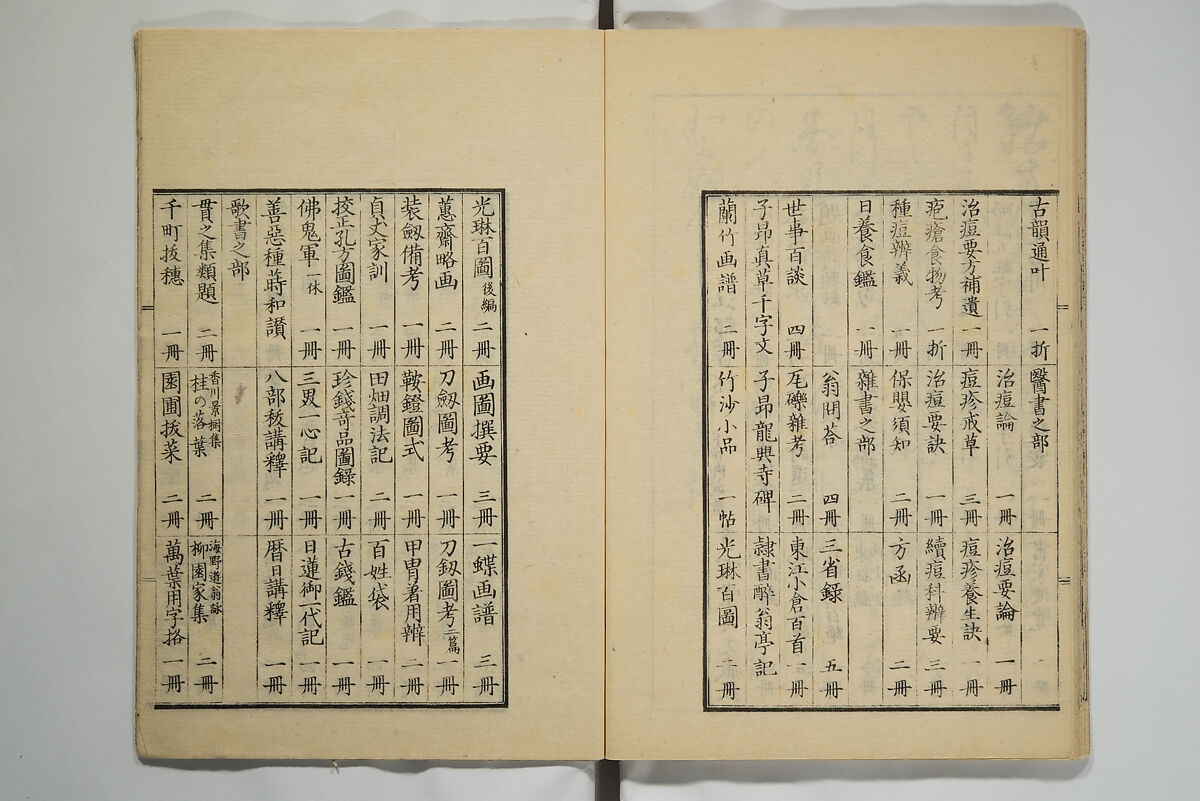 古韻通叶 一折 醫書之部
治痘論 一冊 治痘要論 一冊
治痘要方補遺 一冊 痘疹戒草 三冊 痘疹養生訣 一冊
疱瘡食物考 一折 治痘要訣 一冊 續痘科辨要 三冊
種痘辨義 一冊 保嬰須知 二冊 方函 二冊
日養食鑑 一冊 雜書之部
翁問荅 四冊 三省録 五冊
世事百談 四冊 瓦礫雜考 二冊 東江小倉百首 一冊
子昂真草千字文 子昂龍興寺碑 隷書醉翁亭記
蘭竹画譜 二冊 竹沙小品 一帖 光琳百圖 二冊
光琳百圖後編 二冊 画圖撰要 三冊 一蝶画譜 三冊
蕙齋略画 二冊 刀劔圖考 一冊 刀劔圖考二篇 一冊
装劔備考 一冊 鞍鐙圖式 一冊 甲冑着用辨 二冊
貞丈家訓 一冊 田畑調法記 二冊 百姓袋 一冊
挍正孔方圖鑑 一冊 珍錢竒品圖録 一冊 古錢鑑 一冊
佛鬼軍一休 一冊 三男一心記 一冊 日蓮御一代記 一冊
善惡種蒔和讃 一冊 八部秡講釋 一冊 暦日講釋 一冊
歌書之部
貫之集類題 二冊 香川景樹集桂の落葉 二冊 海野遊翁詠柳園家集 二冊
千町抜穗 一冊 園圃抜菜 二冊 萬葉用字格 一冊